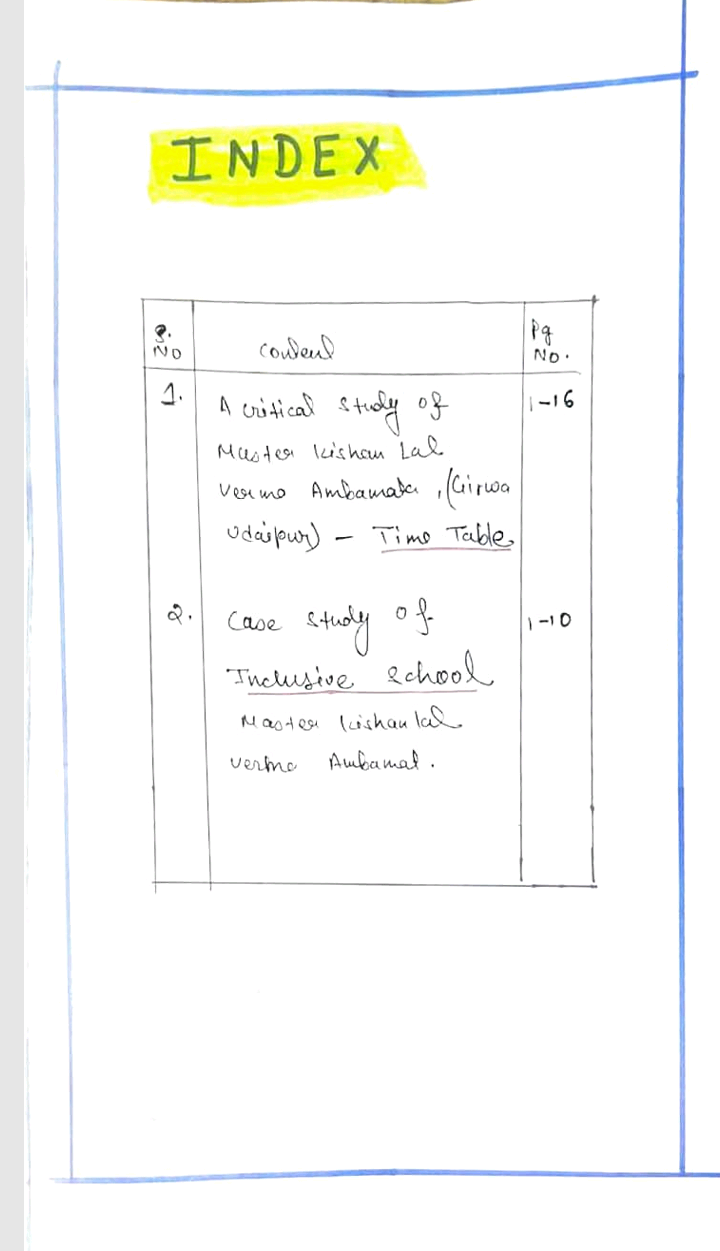 INDEX
S. No
Content
Pg No.
1.
A critical study of
1-16
Master Kishan Lal
Verma Ambamata, (Girwa
Udaipur) - Time Table
2.
Case study of
1-10
Inclusive School
Master Kishan lal
verma Ambamat.